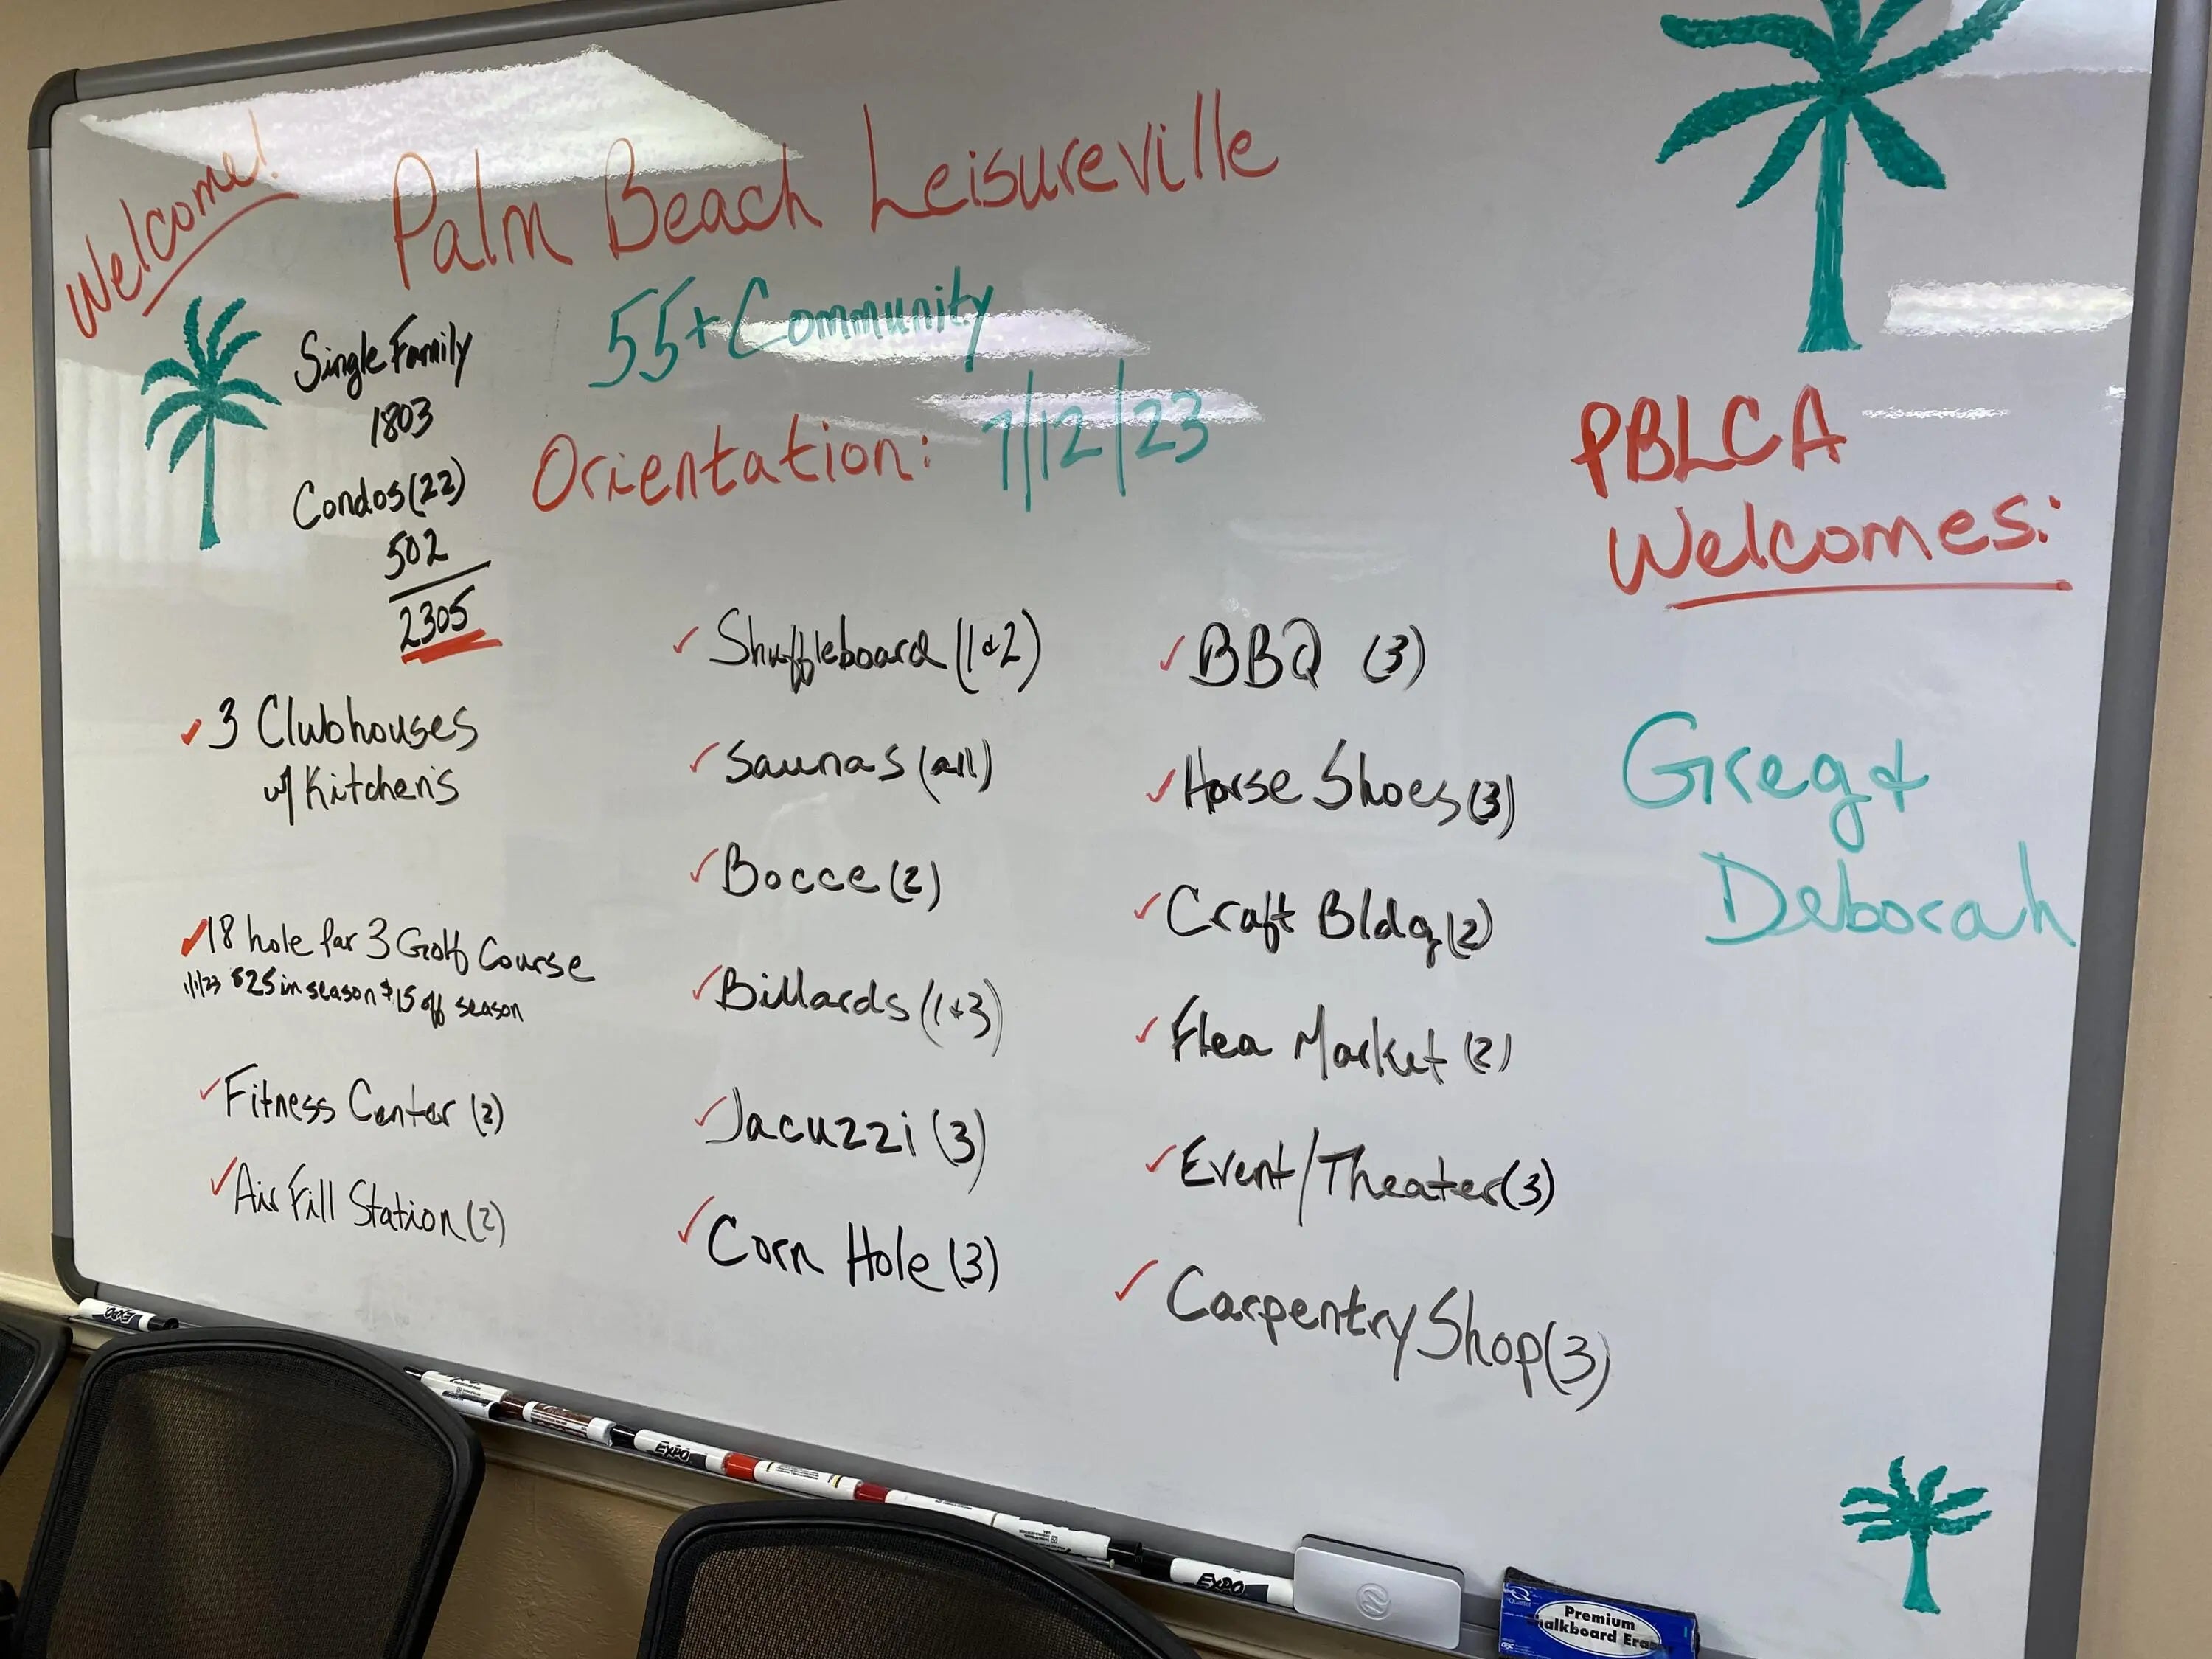 Welcome!
Palm Beach Leisureville
55+ Community
Orientation: 7/12/23
Single Family
1803
Condos (22)
502
2305
✓ 3 Clubhouses
w/ Kitchen's
✓ 18 hole par 3 Golf Course
1/1/23 $25 in season $15 off season
✓ Fitness Center (2)
✓ Air Fill Station (2)
✓ Shuffleboard (1 & 2)
✓ Saunas (all)
✓ Bocce (2)
✓ Billards (1 & 3)
✓ Jacuzzi (3)
✓ Corn Hole (3)
✓ BBQ (3)
✓ Horse Shoes (3)
✓ Craft Bldg (2)
✓ Flea Market (2)
✓ Event/Theater (3)
✓ Carpentry Shop (3)
PBLCA
Welcomes:
Greg &
Deborah
EXPO
EXPO
EXPO
Quartet
Premium
Chalkboard Eraser